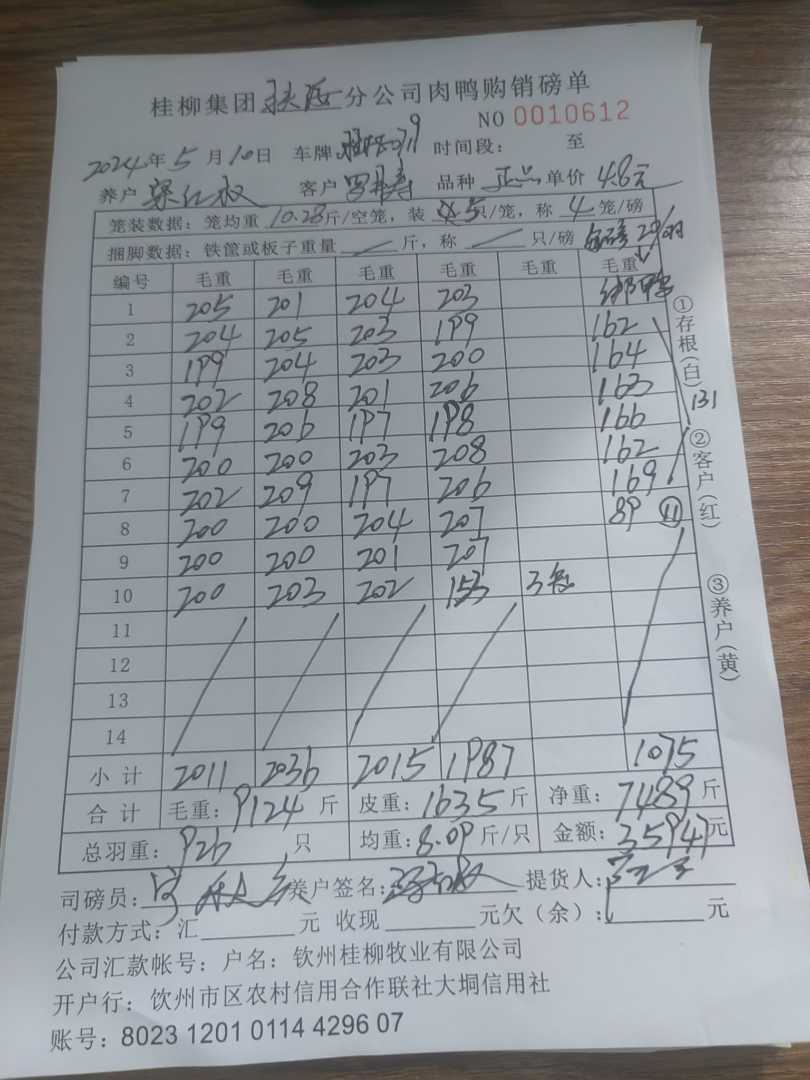 桂柳集团扶绥分公司肉鸭购销磅单
NO 0010612
2024年5月10日 车牌 时间段: 至
养户 客户 品种 正品 单价 4.8元
笼装数据: 笼均重 10.28斤/空笼, 装 5只/笼, 称 4笼/磅
捆脚数据: 铁筐或板子重量 斤, 称 只/磅 每磅20/羽
编号 毛重 毛重 毛重 毛重 毛重 毛重
1 205 201 204 203 绑鸭
2 204 205 203 199 162
3 199 204 203 200 164
4 202 208 201 206 163
5 199 206 197 198 166
6 200 200 203 208 162
7 202 209 197 206 169
8 200 200 204 207 89 ⑪
9 200 200 201 207
10 200 203 202 153 3笼
11
12
13
14
小计 2011 2036 2015 1987 1075
合计 毛重: 9124斤 皮重: 1635斤 净重: 7489斤
总羽重: 926 只 均重: 8.09斤/只 金额: 35947元
司磅员: 养户签名: 提货人:
付款方式: 汇 元 收现 元欠(余): 元
公司汇款帐号: 户名: 钦州桂柳牧业有限公司
开户行: 饮州市区农村信用合作联社大垌信用社
账号: 8023 1201 0114 4296 07
①存根(白) ②客户(红) ③养户(黄)
131